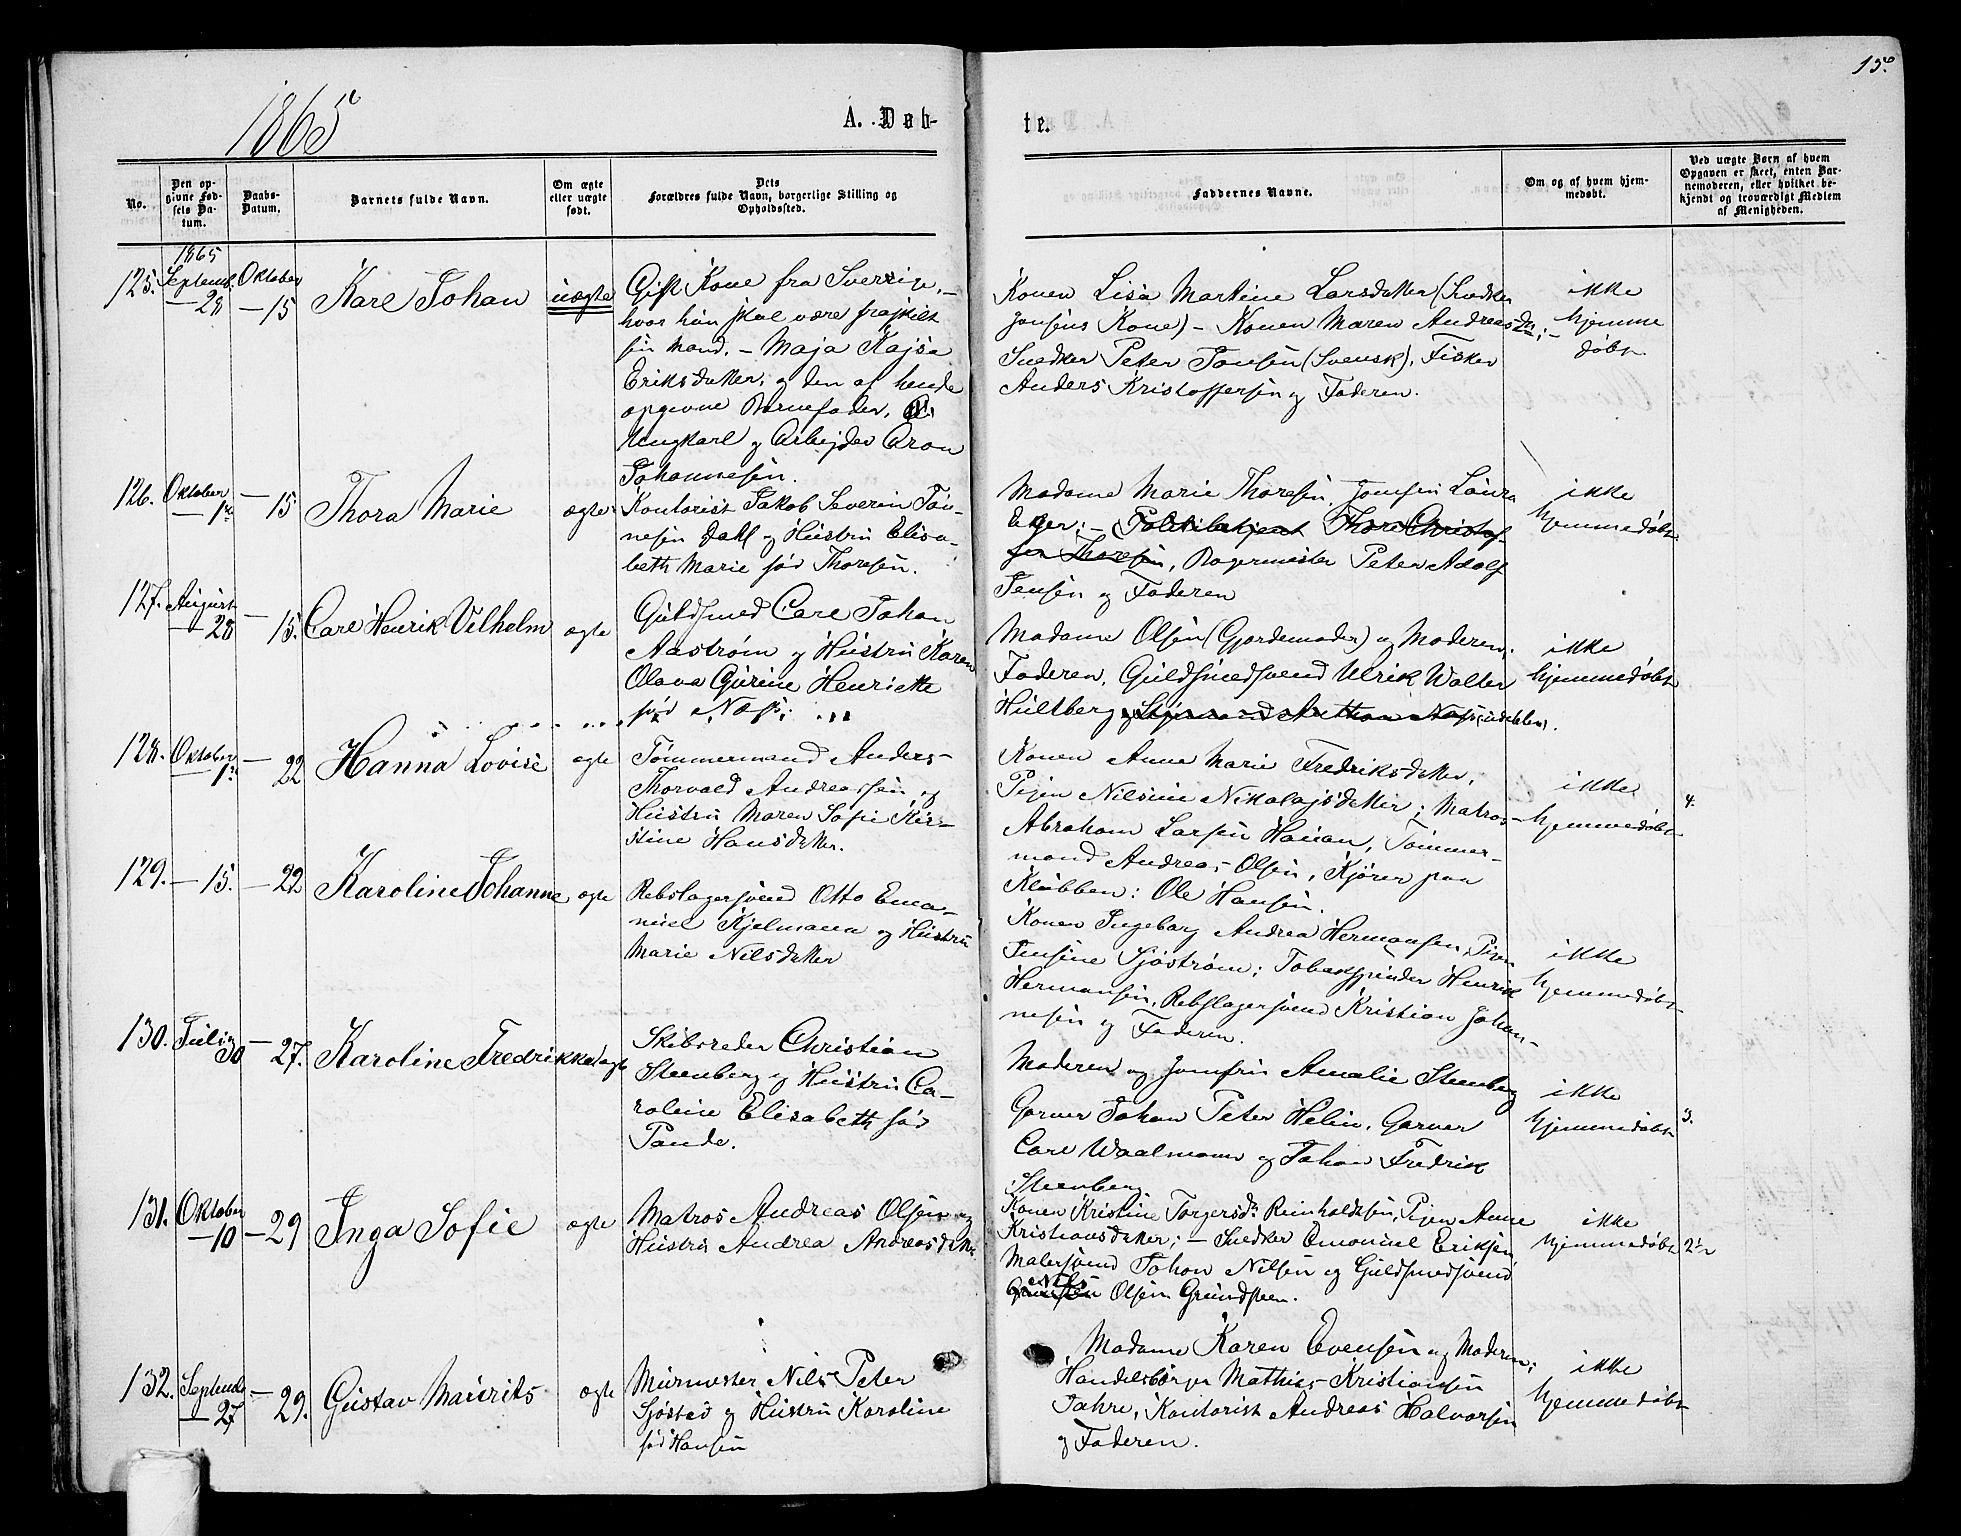 15.
1865
A. Døb-
te.
No.
Den op-
givne Fød-
sels Da-
tum.
Daabs-
Datum.
Barnets fulde Navn.
Om ægte
eller uægte
født.
Dets
Forældres fulde Navn, borgerlige Stilling og
Opholdssted.
Faddernes Navne.
Om og af hvem hjem-
medøbt.
Ved uægte Børn af hvem
Opgaven er skeet, enten Bar-
nemoderen, eller hvilket be-
kjendt og troværdigt Medlem
af Menigheden.
1865
125. Septemb. 28 Oktober 15 Karl Johan uægte
Gift Kone fra Sverrige, –
hvor hun skal være fraskilt
sin Mand. – Maja Kajsa
Eriksdatter, og den af hende
opgivne Barnefader,
Ungkarl og Arbejder Aron
Johannesen.
Konen Lisa Martine Larsdatter (Snedker
Jonsens Kone) – Konen Maren Andreasdr; –
Snedker Peter Jonsen (Svensk), Fisker
Anders Kristoffersen og Faderen.
ikke
hjemme
døbt
126. Oktober 1ste — 15 Thora Marie ægte
Kontorist Jakob Severin Tøn-
nesen Dahl og Hustru Elisa-
beth Marie fød Thoresen.
Madame Marie Thoresen, Jomfru Laura
Eger; – Politibetjent Thor Christof-
fer Thoresen, Bagermester Peter Adolf
Jensen og Faderen
ikke
hjemmedøbt
127. August 28 — 15. Carl Henrik Vilhelm ægte
Guldsmed Carl Johan
Aastrøm og Hustru Karen
Olava Gurine Henriette
fød Næss;
Madame Olsen (Gjordemoder) og Moderen;
Faderen, Guldsmedsvend Ulrik Walter
Hultberg og Styrmand Anthon Næss
ikke
hjemmedøbt
128. Oktober 1ste — 22 Hanna Lovise ægte
Tømmermand Anders
Thorvald Andreassen og
Hustru Maren Sofie Kir-
stine Hansdatter.
Konen Anne Marie Fredriksdatter,
Pigen Nilsine Nikolajsdatter; Matros
Abraham Larsen Hauan, Tømmer-
mand Andreas Olsen, Kjører paa
Klubben: Ole Hansen.
ikke
hjemmedøbt
4.
129. — 15. — 22 Karoline Johanne ægte
Rebslagersvend Otto Ema-
nuel Kjelmann og Hustru
Marie Nilsdatter
Konen Ingeborg Andrea Hermansen, Pigen
Jensine Sjøstrøm; Tobakspinder Henrik
Hermansen, Rebslagersvend Kristian Johan-
nesen og Faderen.
ikke
hjemmedøbt
130. Juli 30 — 27. Karoline Fredrikke ægte
Skibsreder Christian
Steenberg og Hustru Ca-
roline Elisabeth fød
Pande.
Moderen og Jomfru Amalie Steenberg
Garver Johan Peter Helin, Garver
Carl Waalmann og Johan Fredrik
Steenberg
ikke
hjemmedøbt
3.
131. Oktober — 10 — 29 Inga Sofie ægte
Matros Andreas Olsen og
Hustru Andrea Andreasdatter
Konen Kristine Torgersdr. Reinholdtsen, Pigen Anne
Kristiansdatter; – Snedker Emanuel Eriksen
Malersvend Johan Nilsen og Guldsmedsvend
Nils
Olsen Grundsteen.
ikke
hjemmedøbt
2½
132. Septemb. — 27 — 29. Gustav Maurits ægte
Murmester Nils Peter
Sjøsted og Hustru Karoline
fød Hansen
Madame Karen Evensen og Moderen;
Handelsborger Mathias Kristiansen
Jahre, Kontorist Andreas Halvorsen
og Faderen.
ikke
hjemmedøbt